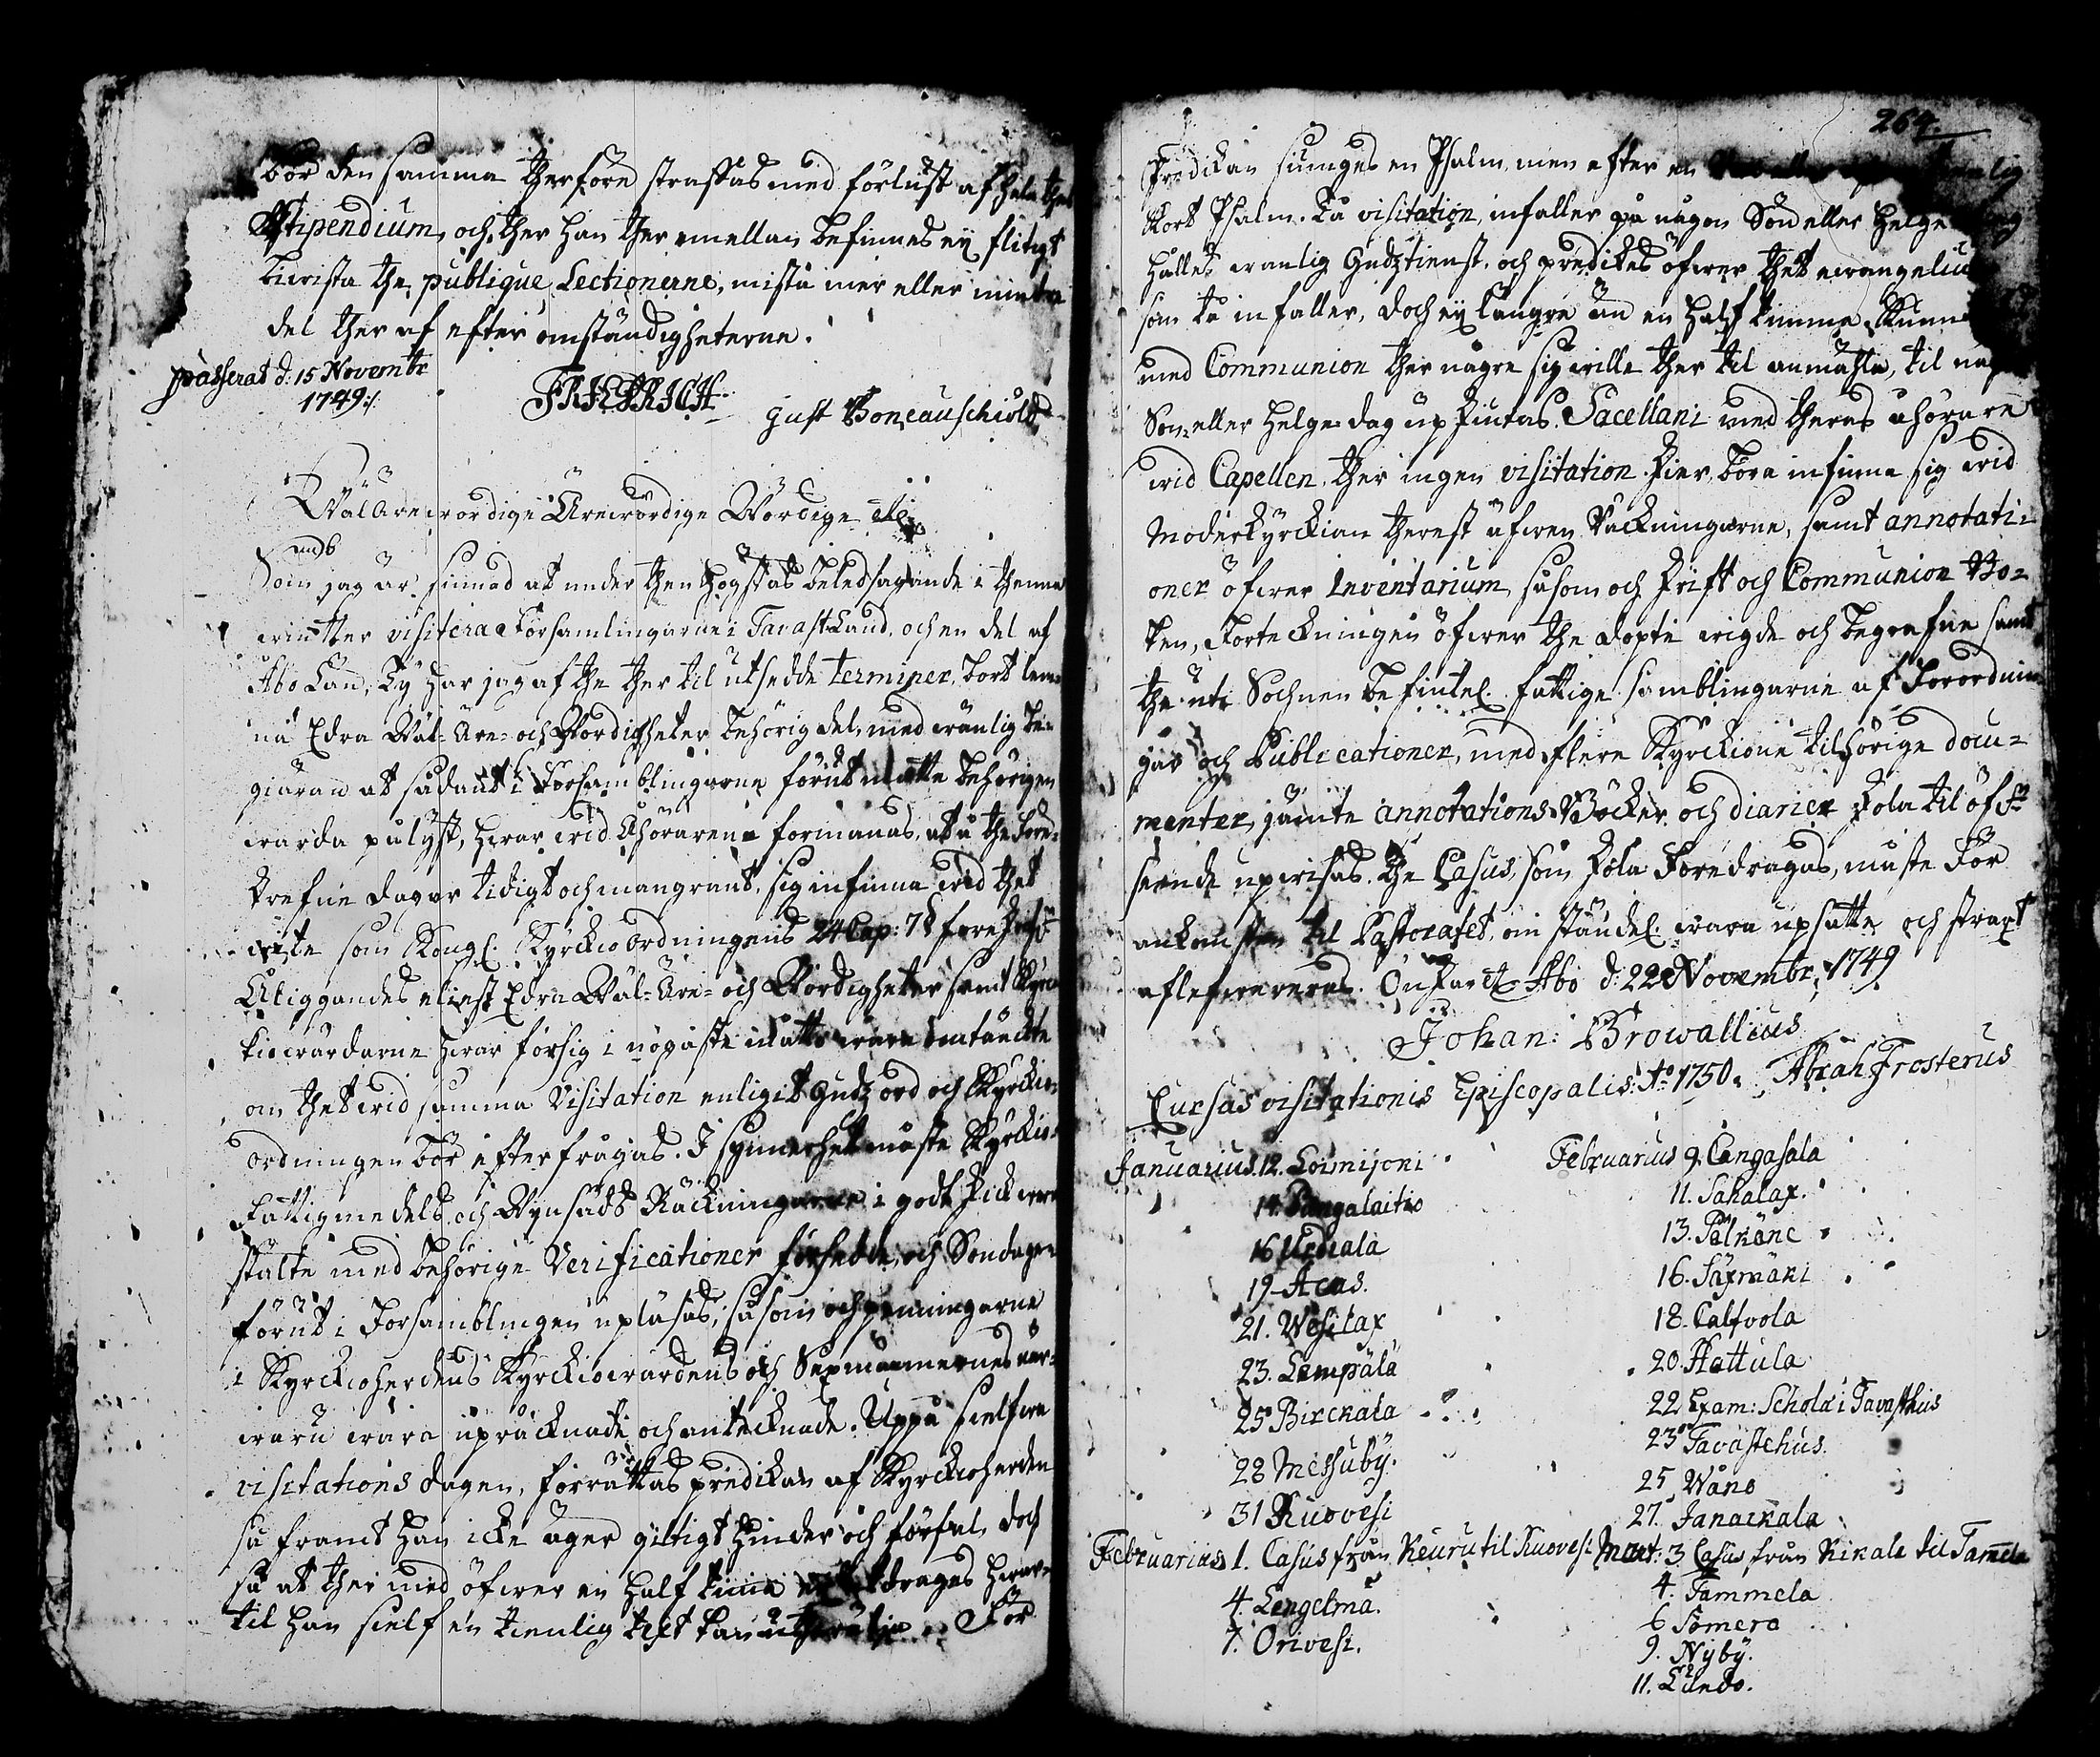 bör den samma therföre straffas med förlust af hela thet
Stipendium, och, ther han ther emellan befinnes ej flitigt
biwista the publique Lectionerne, mista mer eller mindre
del ther af efter omständigheterne.
passerat d: 15 Novembr
1749./.
FRIEDRICH
Gust Boneauschiöld
WälÄrewördige Ärewördige Wördige
Som jag är sinnad at under then Högstas beledsagande i thenna
winter visitera Församlingarne i Tavast Land, och en del af
Åbo Län, Ty har jag af the ther til utsedde terminer, bort lem-
na Edra Wäl-Äre- och Wördigheter behörig del, med wänlig be-
giäran at sådant i Församblingarne förut måtte behörigen
warda pulyst, hwar wid Åhörarena förmanas, at å the före-
skrefne dagar tidigt och mangrant sig infinna wid thet
wite som Kongl. Kyrckio Ordningens 24 Cap: 7 §
Åliggandes eliest Edra Wäl-Äre- och Wördigheter samt Kyrc-
kiowärdarne hwar för sig i nogaste måtto wara omtänckte
om thet wid samma Visitation enligit Gudz ord och Kyrckio-
ordningen bör efterfrågas. I synnerhet måste Kyrckio-
Fattigmedels och Wijnsäds Räckningarne i godt skick
stälte med behörige Verificationer försedde, och Söndagen
förut i Församblingen upläsas; såsom och penningarne
i Kyrckioherdens Kyrckiowärdens och Sexmännernes när-
waru wara upräcknade och antecknade. Uppå sielfwa
visitations dagen, förrättas predikan af Kyrckioherden
så framt han icke äger giltigt hinder och förfal, doch
så at ther med öfwer en half timma ej fördrages hwar-
til han sielf en tienlig text kan utwälja. För
264.
Predikan siunges en Psalm, men efter en
kort Psalm. Då visitation, infaller på någon Sön eller Helge
hålles wanlig Gudztienst, och predikes öfwer thet evangelium
som då infaller, doch ej längre än en half timma. Kunna
med Communion ther någre sig wille ther til anmähla, til
Sön eller Helge-dag upskiutas. Sacellani med theras åhörare
wid Capellen, ther ingen visitation skier, böra infinna sig wid
Moderkyrckian therest äfwen Räckningarne, samt annotati-
oner öfwer Inventarium, såsom och Skrift och Communion Bo-
ken, Förteckningen öfwer the döpte wigde och begrafne samt
the uti Sochnen befintel. fattige samblingarne af Förordnin-
gar och Publicationer, med flere Kyrckione tilhörige docu-
menter, jämte annotations Böcker och diarier skola til öf:
seende upwisas. The Casus, som skola Föredragas, måste För
ankomsten til Pastoratet, om ständel. wara upsatte och straxt
aflefwereras. Önskar etc Åbo d: 22 Novembr; 1749
Johan: Browallius
Abrah Frosterus
Cursus visitationis Episcopalis: A:o 1750.
Januarius. 12. Loimijoni
14. Pungalaitio
16 Urdiala
19 Acas.
21. Wesilax
23. Lempälä
25 Birckala
28 Messuby.
31 Ruovesi
Februarius 1. Casus från Keuru til Ruovesi
4. Lengelmä.
7. Orivesi.
Februarius 9. Cangasala
11. Sahalax.
13. Pälkäne
16. Säxmäki
18. Calfvola
20. Hattula
22 Exam: Schola i Tavasthus
23 Tavastehus.
25 Wånå
27. Janackala
Mart: 3 Casus från Kikala til Tamela
4. Tammela
6 Somero
9. Nyby.
11. Lundo.